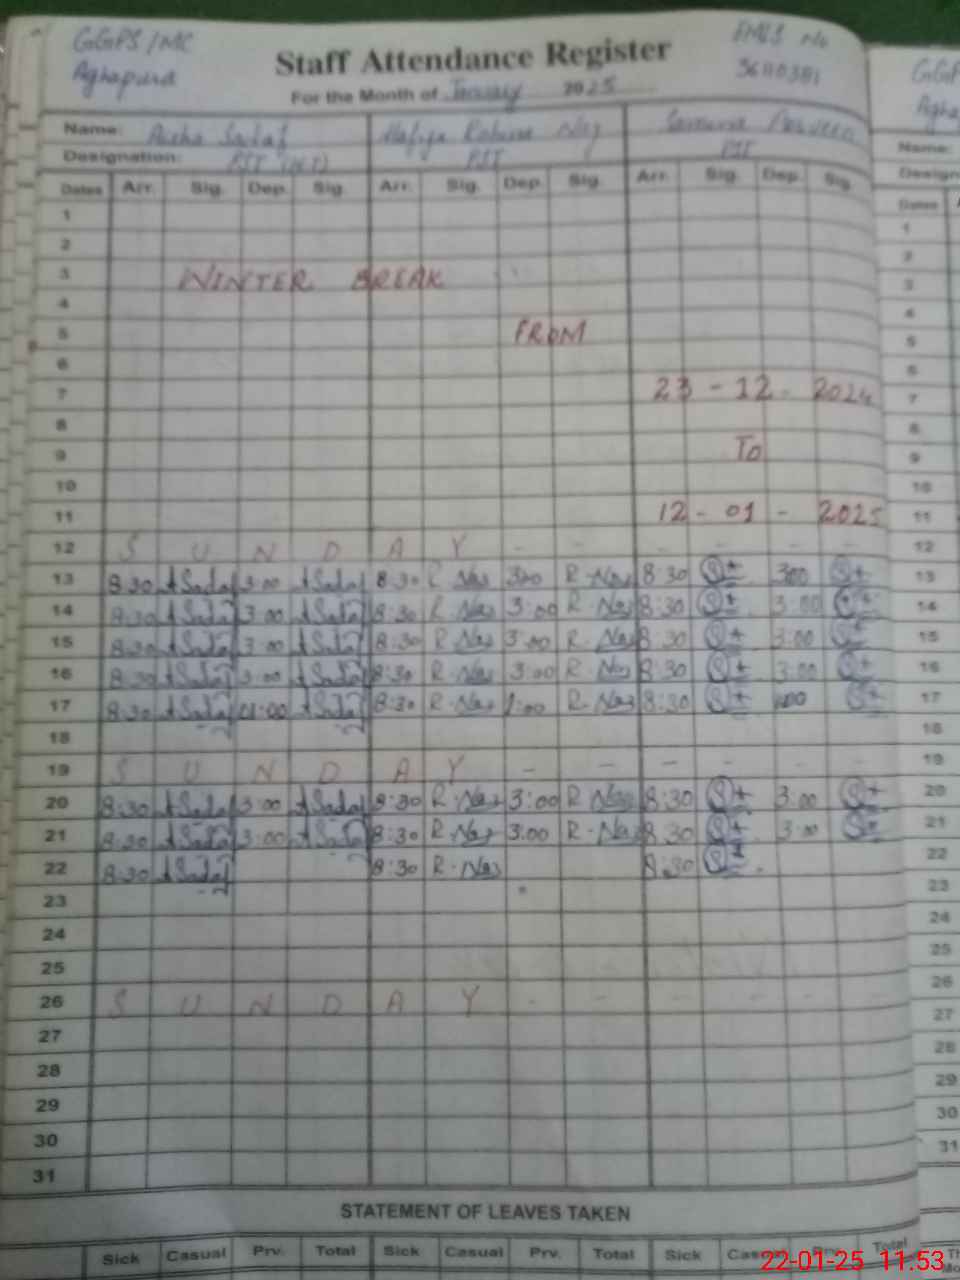 GGPS/MC
Aghapura
EMIS No
36110381
Staff Attendance Register
For the Month of January 2025
Name: Aisha Sadaf Rahma Naz Perveen
Designation: PST PST
Dates Arr. Sig. Dep. Sig. Arr. Sig. Dep. Sig. Arr. Sig. Dep. Sig.
1
2
3 WINTER BREAK
4
5 FROM
6
7 23 - 12 - 2024
8
9 TO
10
11 12 - 01 - 2025
12 S U N D A Y - - - - - -
13 8:30 A Sadaf 3:00 A Sadaf 8:30 R. Naz 3:00 R. Naz 8:30 3:00
14 8:30 A Sadaf 3:00 A Sadaf 8:30 R. Naz 3:00 R. Naz 8:30 3:00
15 8:30 A Sadaf 3:00 A Sadaf 8:30 R. Naz 3:00 R. Naz 8:30 3:00
16 8:30 A Sadaf 3:00 A Sadaf 8:30 R. Naz 3:00 R. Naz 8:30 3:00
17 8:30 A Sadaf A Sadaf 8:30 R. Naz 1:00 R. Naz 8:30
18
19 S U N D A Y - - - - - -
20 8:30 A Sadaf 3:00 A Sadaf 8:30 R. Naz 3:00 R. Naz 8:30 3:00
21 8:30 A Sadaf 3:00 A Sadaf 8:30 R. Naz 3:00 R. Naz 8:30 3:00
22 8:30 A Sadaf 8:30 R. Naz 8:30
23
24
25
26 S U N D A Y - - - - - -
27
28
29
30
31
STATEMENT OF LEAVES TAKEN
Sick Casual Prv. Total Sick Casual Prv. Total Sick Casual Prv. Total
22-01-25 11.53
GGP
Agha
Name:
Design
Dates
1
2
3
4
5
6
7
8
9
10
11
12
13
14
15
16
17
18
19
20
21
22
23
24
25
26
27
28
29
30
31